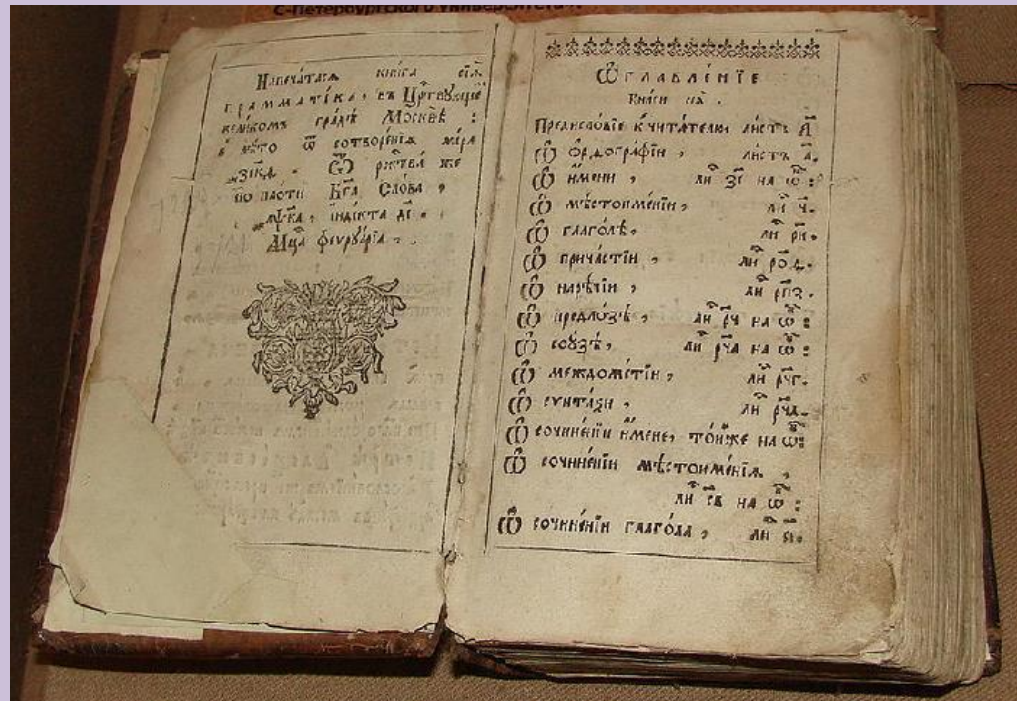 С-Петербургского университета
Напеча́тасѧ кни́га сїѧ̀
грамма́тїка, въ Црⷭ҇твꙋющеⷨ
вели́комъ гра́дѣ Москвѣ̀ :
в лѣ́то ѿ сотворе́нїѧ мі́ра
҂зска. Ѿ ржⷭ҇тва́ же
по пло́ти Бг҃а Сло́ва ,
҂аѱка, індїкта дї .
Мцⷭ҇а феѵрꙋа́рїа .
Ѡ҆главле́нїе
Кни́ги сеѧ̀ .
Предисло́вїе к̾ чита́телю ли́стъ а҃
Ѽ о҆рѳогра́фїи , ли́стъ а҃.
Ѽ и҆́мени , лиⷭ҇ з҃і на ѡ҆ⷠ :
Ѽ мѣстоиме́нїи , лиⷭ҇ ч҃.
Ѽ глаго́лѣ , лиⷭ҇
Ѽ прича́стїи , лиⷭ҇ ро҃д.
Ѽ нарѣ́чїи , лиⷭ҇ рп҃з.
Ѽ предло́ѕѣ , лиⷭ҇ рч҃ на ѡ҆ⷠ :
Ѽ сою́зѣ , лиⷭ҇ рч҃а на ѡ҆ⷠ :
Ѽ междоме́тїи , лиⷭ҇ рч҃г.
Ѽ сѵнта́ѯи , лиⷭ҇ рч҃д.
Ѽ сочине́нїи и҆́мене, то́йже на ѡ҆ⷠ :
Ѽ сочине́нїи мѣстоиме́нїѧ ,
лиⷭ҇ с҃в на ѡ҆ⷠ :
Ѽ сочине́нїи глаго́ла , лиⷭ҇